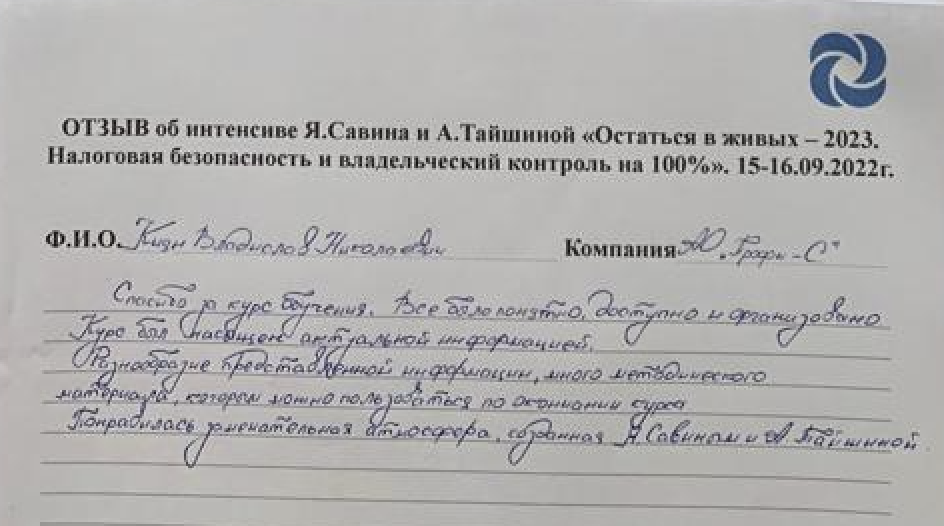 ОТЗЫВ об интенсиве Я.Савина и А.Тайшиной «Остаться в живых – 2023.
Налоговая безопасность и владельческий контроль на 100%». 15-16.09.2022г.
Ф.И.О. Владислав Николаевич Компания АО
Спасибо за курс обучения. Все было понятно, доступно и организовано
Курс был насыщен актуальной информацией.
Разнообразие представленной информации, много методического
материала, которым можно пользоваться по окончании курса
Понравилась замечательная атмосфера, созданная Я.Савиным и А.Тайшиной.